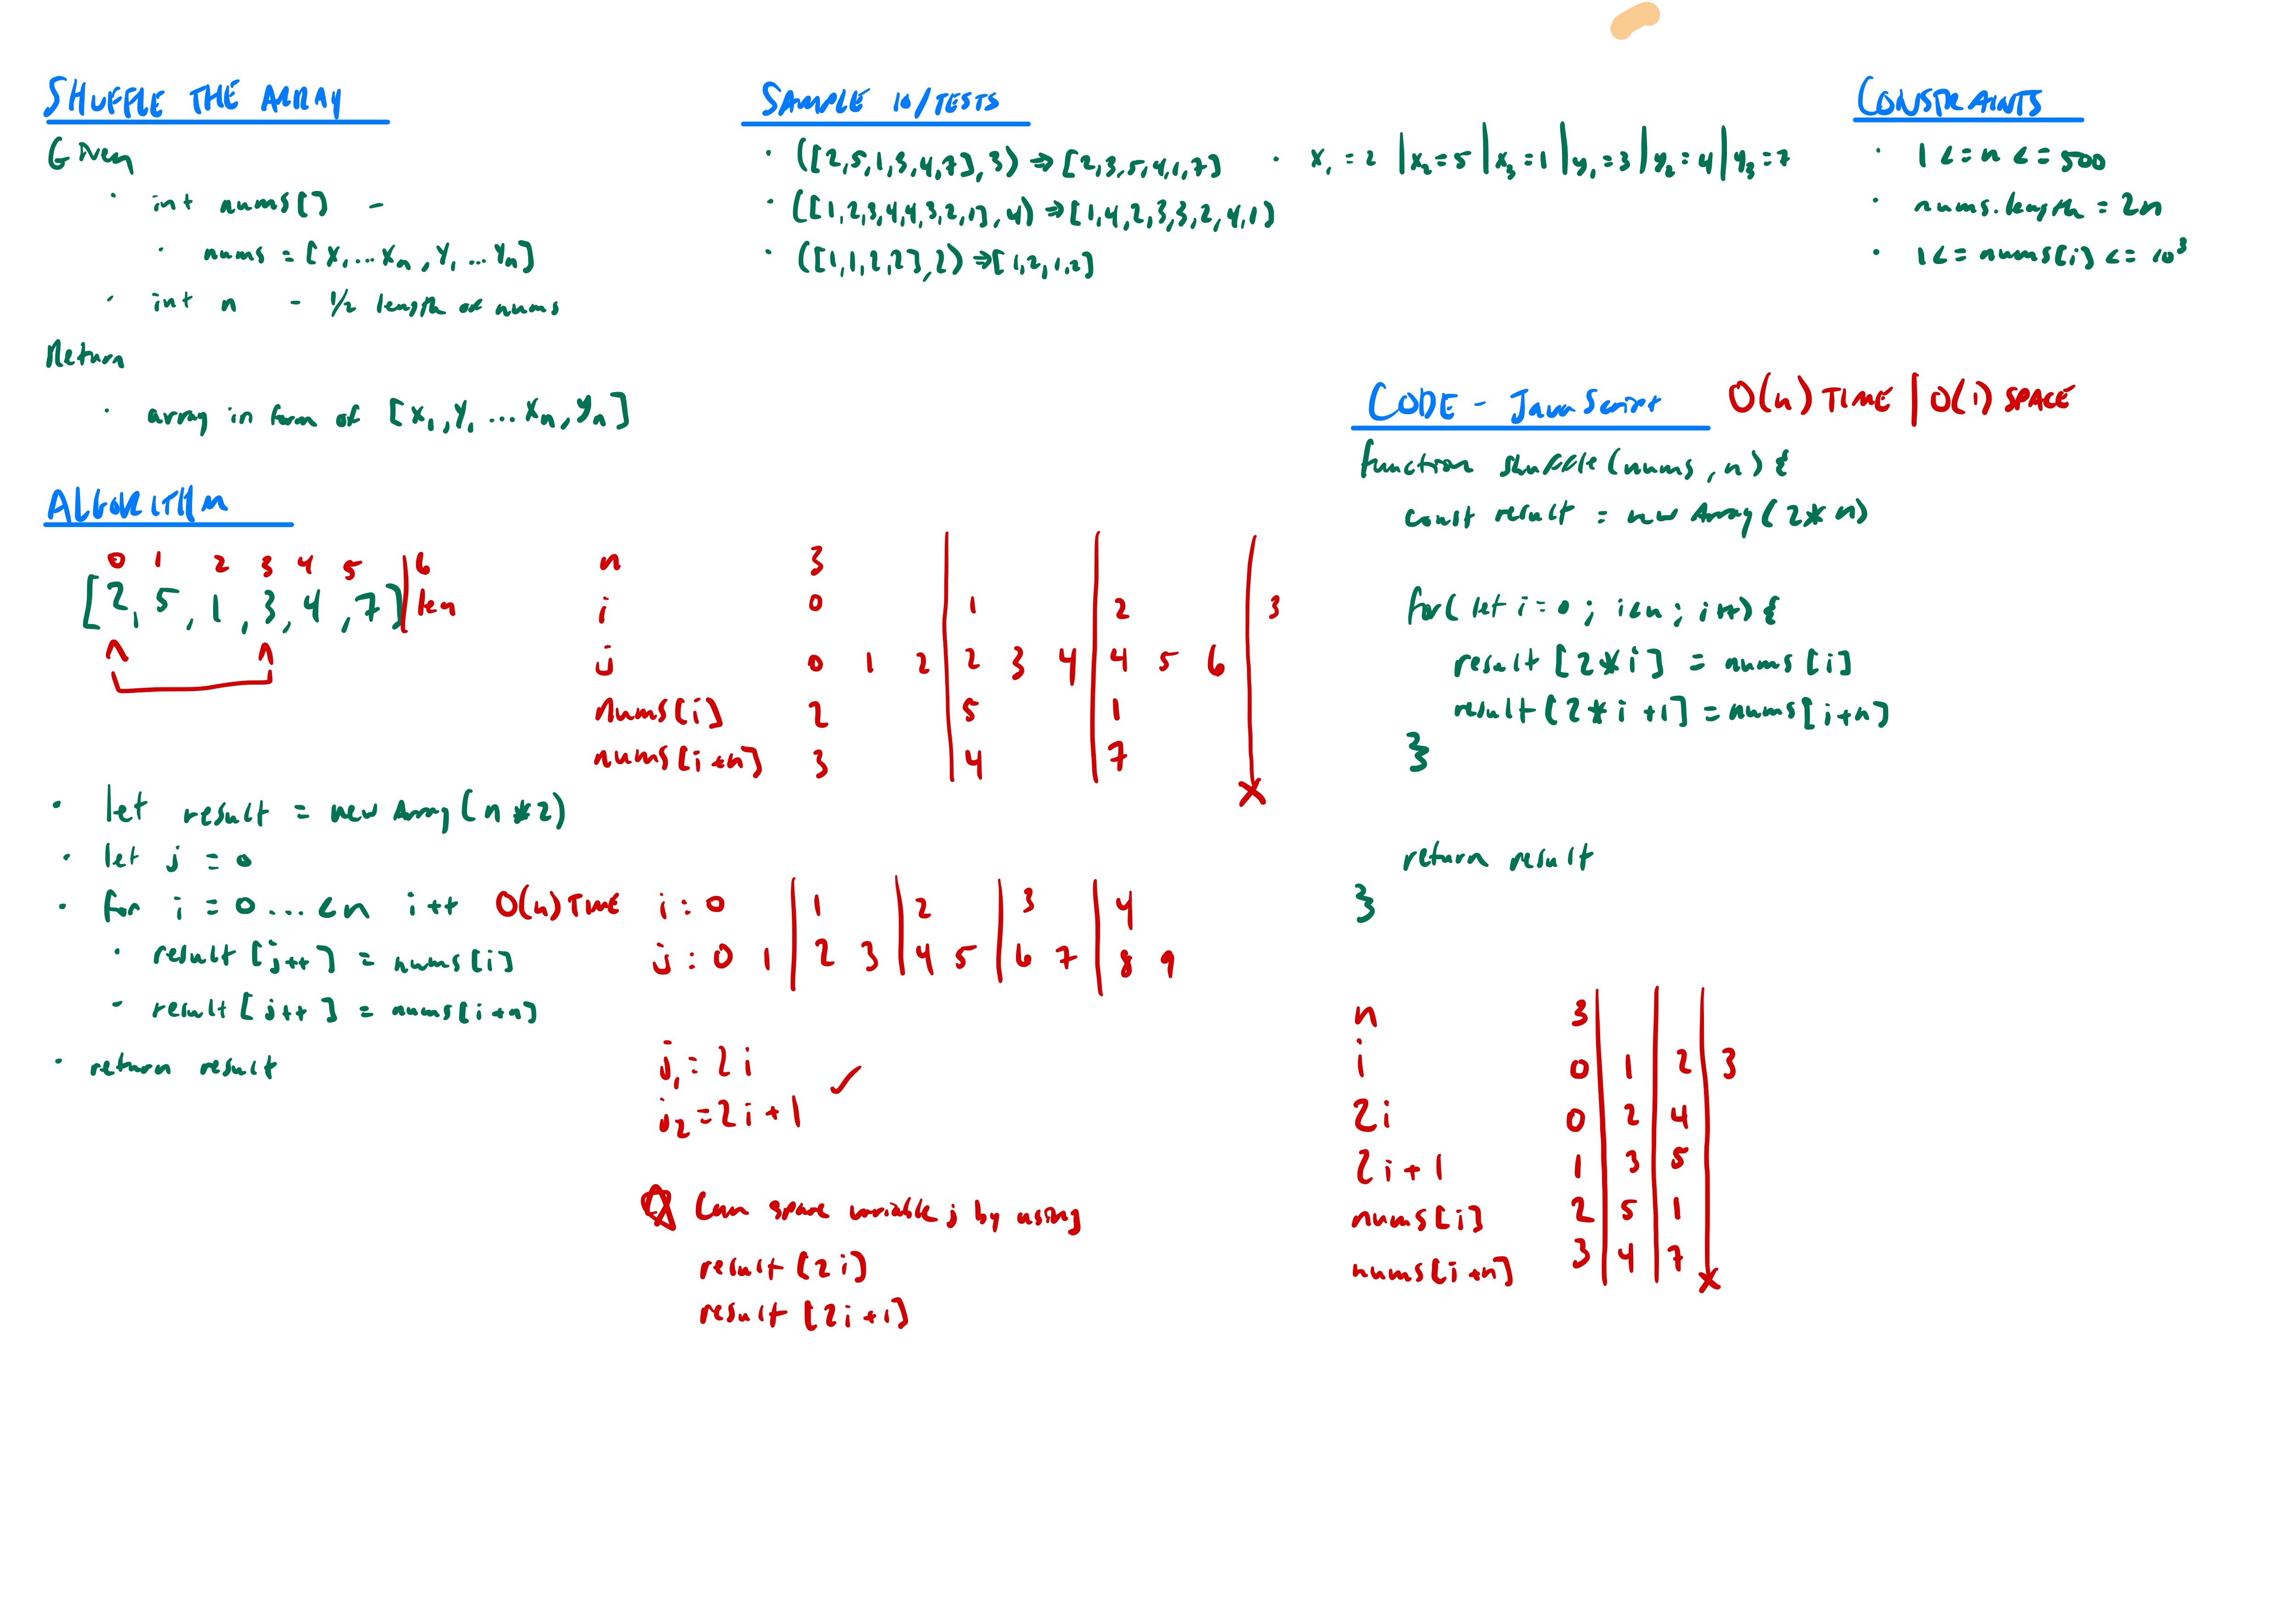 SHUFFLE THE ARRAY
Given
· int nums[] -
· nums = [x₁...xₙ, y₁...yₙ]
· int n - 1/2 length of nums
Return
· array in form of [x₁,y₁...xₙ,yₙ]
SAMPLE IO/TESTS
· ([2,5,1,3,4,7],3) => [2,3,5,4,1,7] · x₁ = 2 | x₂ = 5 | x₃ = 1 | y₁ = 3 | y₂ = 4 | y₃ = 7
· ([1,2,3,4,4,3,2,1],4) => [1,4,2,3,3,2,4,1]
· ([1,1,2,2],2) => [1,2,1,2]
CONSTRAINTS
· 1 <= n <= 500
· nums.length = 2n
· 1 <= nums[i] <= 10³
ALGORITHM
0 1 2 3 4 5 | 6
[2, 5, 1, 3, 4, 7] | len
n 3
i 0 | 1 | 2 | 3
j 0 1 2 | 2 3 4 | 4 5 6
nums[i] 2 | 5 | 1
nums[i+n] 3 | 4 | 7
x
· let result = new Array(n*2)
· let j = 0
· for i = 0...<n i++ O(n) TIME
· result[j++] = nums[i]
· result[j++] = nums[i+n]
· return result
i: 0 | 1 | 2 | 3 | 4
j: 0 1 | 2 3 | 4 5 | 6 7 | 8 9
j₁ = 2i
j₂ = 2i+1 ✓
Can spare variable j by using
result[2i]
result[2i+1]
CODE - JavaScript O(n) TIME | O(1) SPACE
function shuffle(nums, n) {
const result = new Array(2*n)
for(let i=0; i<n; i++) {
result[2*i] = nums[i]
result[2*i+1] = nums[i+n]
}
return result
}
n 3
i 0 | 1 | 2 | 3
2i 0 | 2 | 4
2i+1 1 | 3 | 5
nums[i] 2 | 5 | 1
nums[i+n] 3 | 4 | 7
x